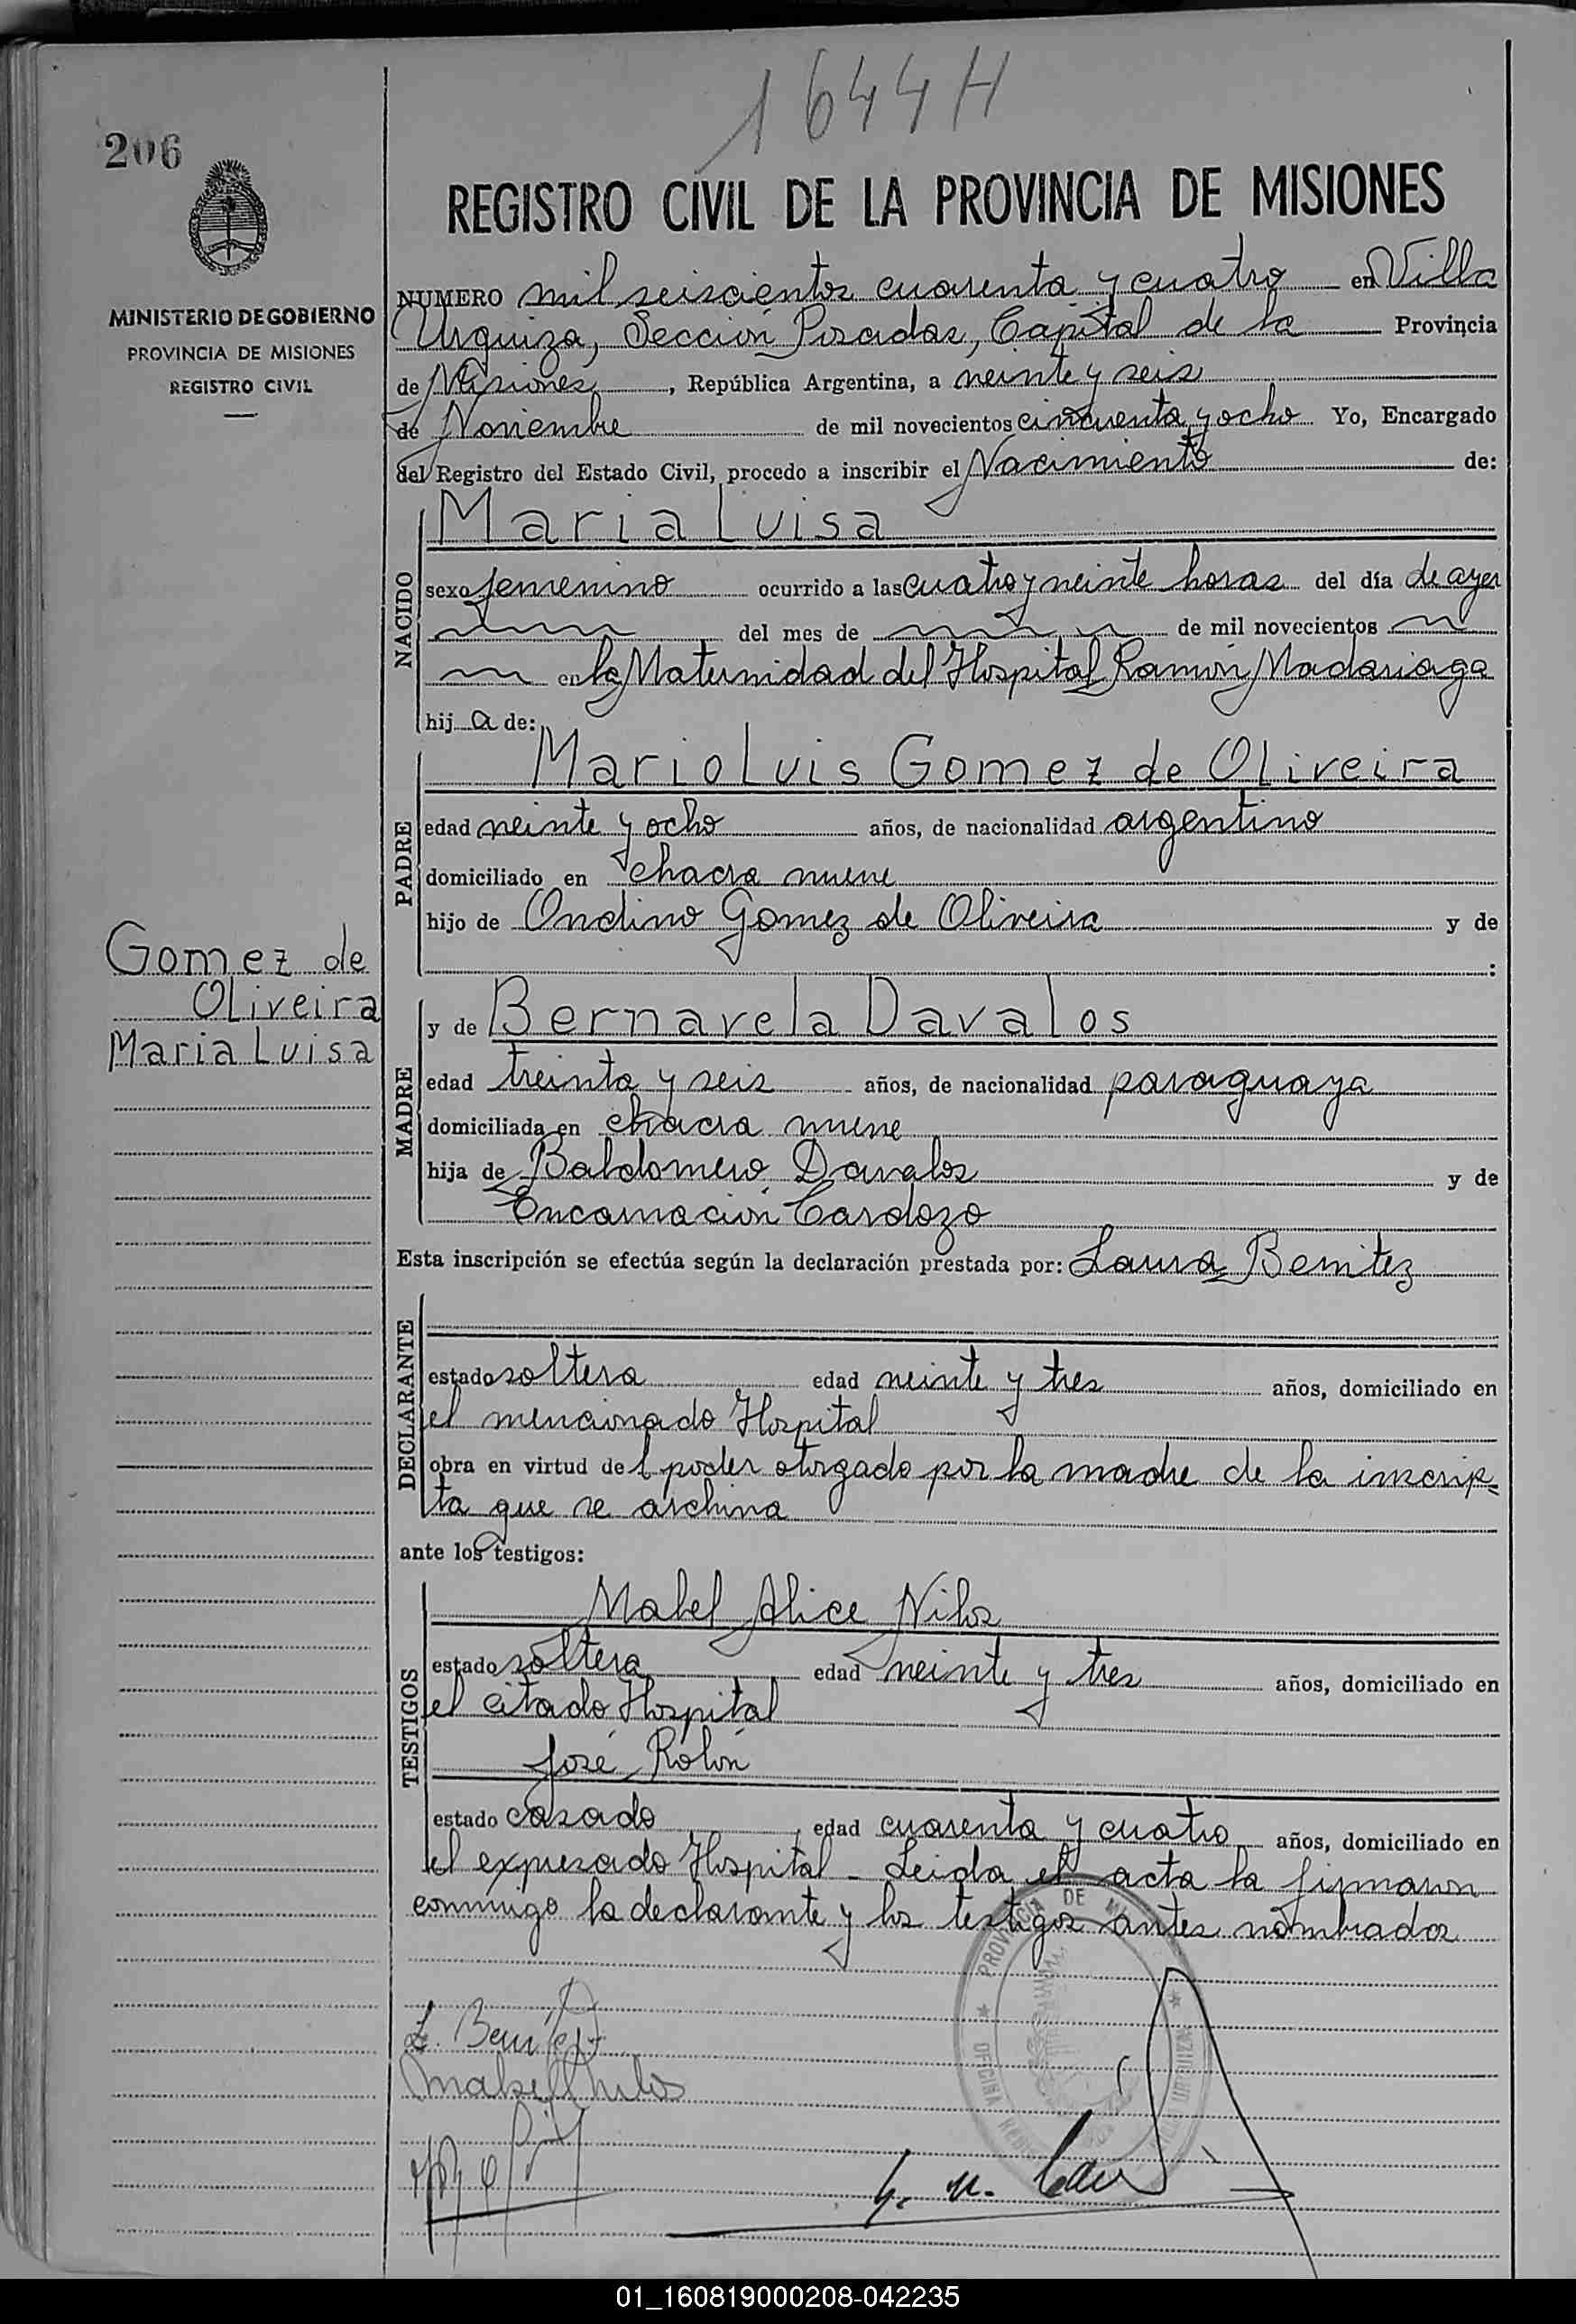 1644H
206
REGISTRO CIVIL DE LA PROVINCIA DE MISIONES
MINISTERIO DE GOBIERNO
PROVINCIA DE MISIONES
REGISTRO CIVIL
NUMERO mil seiscientos cuarenta y cuatro en Villa
Urquiza, Sección Posadas, Capital de la Provincia
de Misiones, República Argentina, a veinte y seis
de Noviembre de mil novecientos cincuenta y ocho Yo, Encargado
del Registro del Estado Civil, procedo a inscribir el Nacimiento de:
Maria Luisa
NACIDO
sexo femenino ocurrido a las cuatro y veinte horas del día de ayer
del mes de de mil novecientos
en la Maternidad del Hospital Ramón Madariaga
hij a de:
Mario Luis Gomez de Oliveira
PADRE
edad veinte y ocho años, de nacionalidad argentino
domiciliado en chacra nueve
hijo de Ondino Gomez de Oliveira y de
:
Gomez de
Oliveira
Maria Luisa
y de Bernavela Davalos
MADRE
edad treinta y seis años, de nacionalidad paraguaya
domiciliada en chacra nueve
hija de Baldomero Davalos y de
Encarnación Cardozo
Esta inscripción se efectúa según la declaración prestada por: Laura Benitez
DECLARANTE
estado soltera edad veinte y tres años, domiciliado en
el mencionado Hospital
obra en virtud del poder otorgado por la madre de la inscrip-
ta que se archiva
ante los testigos:
Mabel Alice Nilos
TESTIGOS
estado soltera edad veinte y tres años, domiciliado en
el citado Hospital
José Rolón
estado casado edad cuarenta y cuatro años, domiciliado en
el expresado Hospital - Leida el acta la firmaron
conmigo la declarante y los testigos antes nombrados
PROVINCIA DE
OFICINA
L. Benitez
01_160819000208-042235